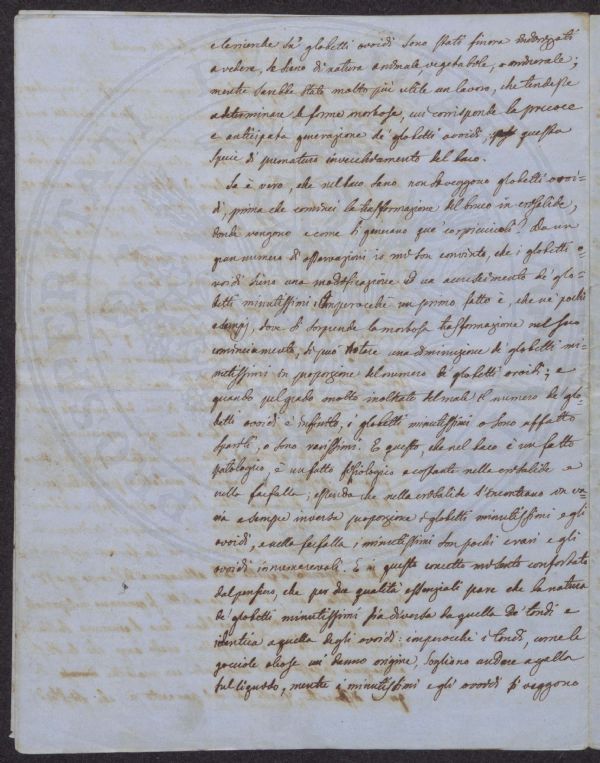 e le ricerche su' globetti ovoidi sono stati finora indirizzati
a vedere, se siano di natura animale, vegetabile, o minerale;
mentre sarebbe stato molto più utile un lavoro, che tendesse
a determinare le forme morbose, cui corrisponde la precoce
e anticipata generazione de' globetti ovoidi, questa
specie di prematuro invecchiamento del baco.
Se è vero, che nel baco sano non si veggono globetti ovoi=
di, prima che cominci la trasformazione del bruco in crisalide,
donde vengono e come si generano que' corpicciuoli? Da un
gran numero di osservazioni io mi son convinto, che i globetti o=
voidi sieno una modificazione ed un accrescimento di glo=
betti minutissimi: Imperocchè un primo fatto è, che ne' pochi
esempj, dove si sorprende la morbosa trasformazione nel suo
cominciamento, si può notare una diminuzione de' globetti mi=
nutissimi in proporzione del numero de' globetti ovoidi; e
quando pel grado molto inoltrato del male il numero de' glo=
betti ovoidi è infinito, i globetti minutissimi o sono affatto
spariti, o sono rarissimi. E questo, che nel baco è un fatto
patologico, è un fatto fisiologico e costante nelle crisalide e
nelle farfalle; essendo che nella crisalide s'incontrano in va=
ria e sempre inversa proporzione i globetti minutissimi e gli
ovoidi, e nella farfalla i minutissimi son pochi e rari e gli
ovoidi innumerevoli. E in questo concetto mi sento confortato
dal pensiero, che per due qualità essenziali pare che la natura
de' globetti minutissimi sia diversa da quella de' tondi e
identica a quella degli ovoidi: imperocchè i tondi, come le
gocciole oleose cui danno origine, sogliono andare a galla
sul liquido, mentre i minutissimi e gli ovoidi si veggono